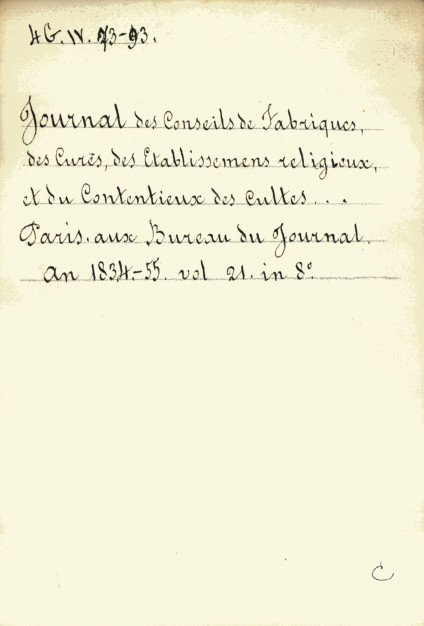 4G. IV. 73-93.
Journal des Conseils de Fabriques,
des Curés, des Etablissemens religieux,
et du Contentieux des Cultes...
Paris. aux Bureau du Journal.
an 1834-55. vol 21. in 8º.
C